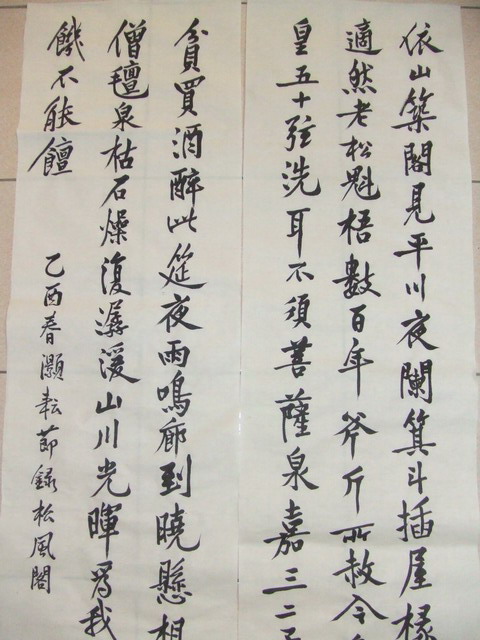 依山築閣見平川夜闌箕斗插屋椽
適然老松魁梧數百年斧斤所赦今
皇五十弦洗耳不須菩薩泉嘉三二子
貧買酒醉此筵夜雨鳴廊到曉懸相
僧氈泉枯石燥復潺湲山川光暉爲我
饑不能饘
乙酉春灝耘節錄松風閣